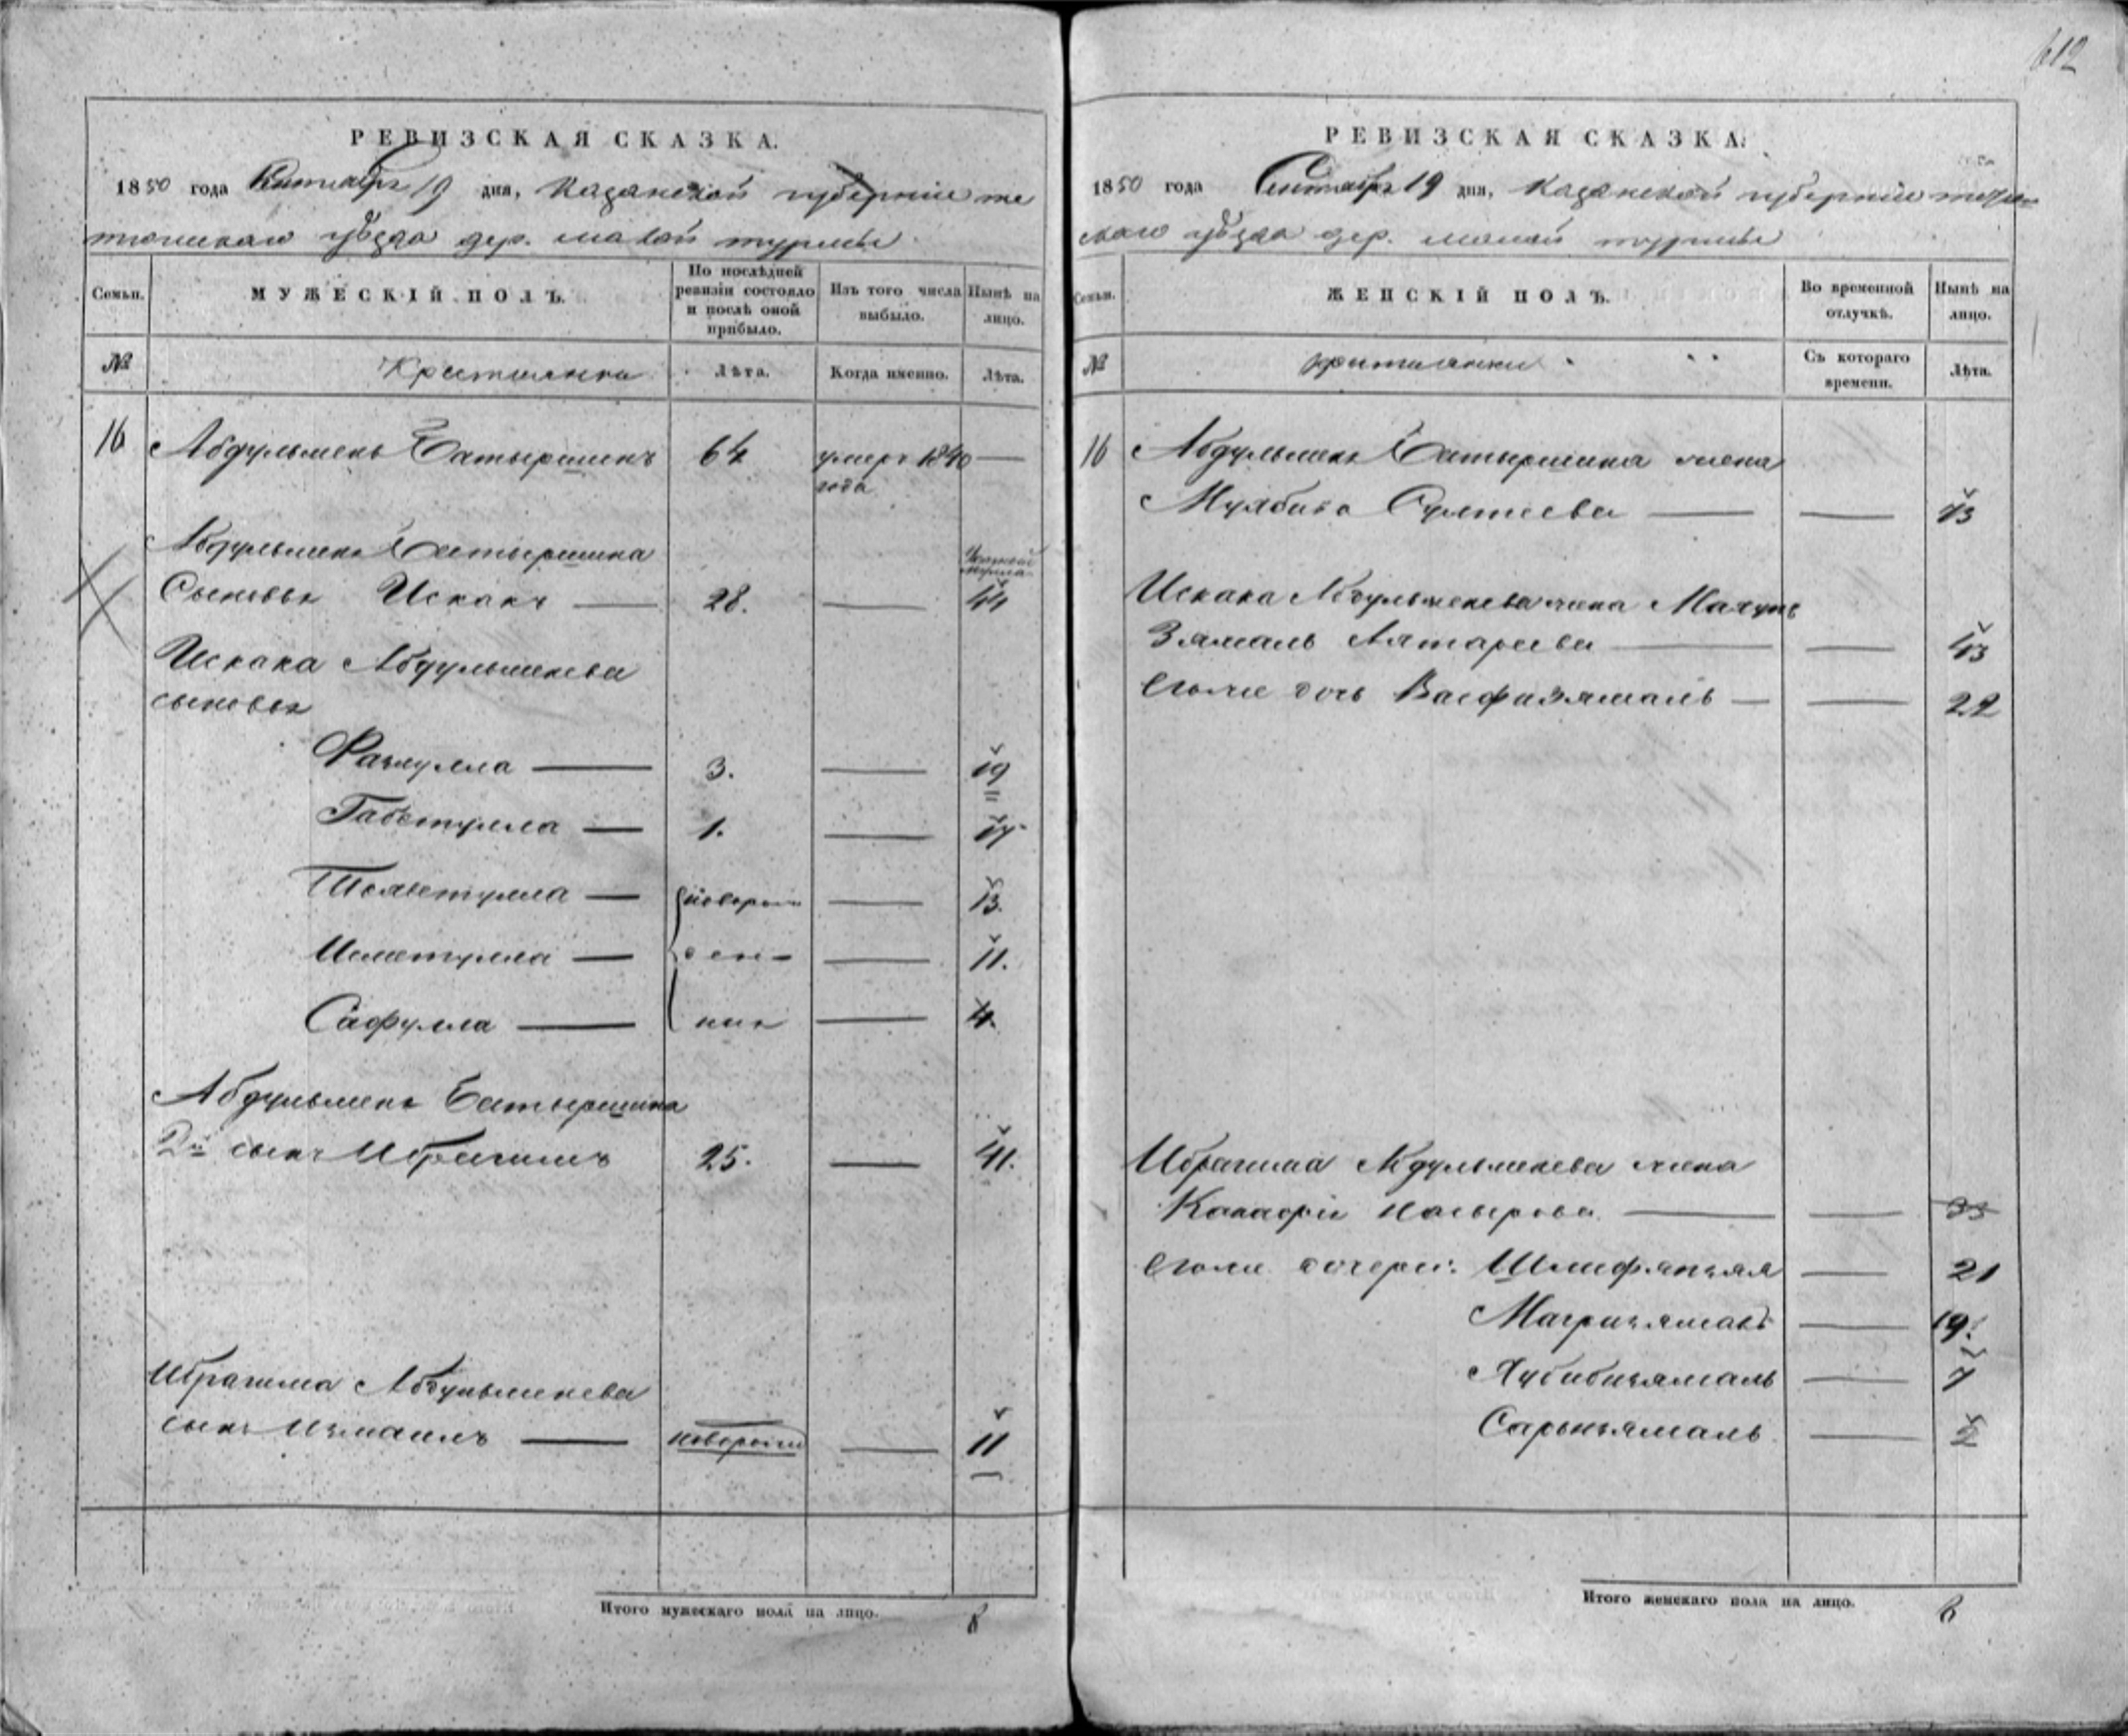 612
РЕВИЗСКАЯ СКАЗКА.
1850 года Сентября 19 дня, Казанской губернии те
тюшскаго уѣзда дер. малой турмы
Семьи.
МУЖЕСКІЙ ПОЛЪ.
По послѣдней ревизіи состояло и послѣ оной прибыло.
Изъ того числа выбыло.
Нынѣ на лицо.
№
Крестьянъ
Лѣта.
Когда именно.
Лѣта.
16 Абдульмень Батыршинъ 64 умеръ 1840 —
года
Абдульменя Батыршина
Сыновья Искакъ — 28. — 44
Искака Абдульменева
сыновья
Разулла — 3. — 19
Габетулла — 1. — 17
— новорож — 13.
— ден — 11.
Сафулла — ныя — 4.
Абдульменя Батыршина
2й сынъ Ибрагимъ 25. — 41.
Ибрагима Абдульменева
сынъ Измаилъ — новорожд — 11
Итого мужескаго пола на лицо. 8
РЕВИЗСКАЯ СКАЗКА.
1850 года Сентября 19 дня, Казанской губернии тетюш
скаго уѣзда дер. малой турмы
Семьи.
ЖЕНСКІЙ ПОЛЪ.
Во временной отлучкѣ.
Нынѣ на лицо.
№
крестьянки
Съ котораго времени.
Лѣта.
16 Абдульменя Батыршина жена
— — 73
Искака Абдульменева жена Махуп
Зямаль — — 43
Егоже дочь Васфизямаль — — 22
Ибрагима Абдульменева жена
Насырова — — 33
Егоже дочери: — 21
Магризямаль — 19.
Хубибизямаль — 7
Сарбизямаль — 2
Итого женскаго пола на лицо. 8